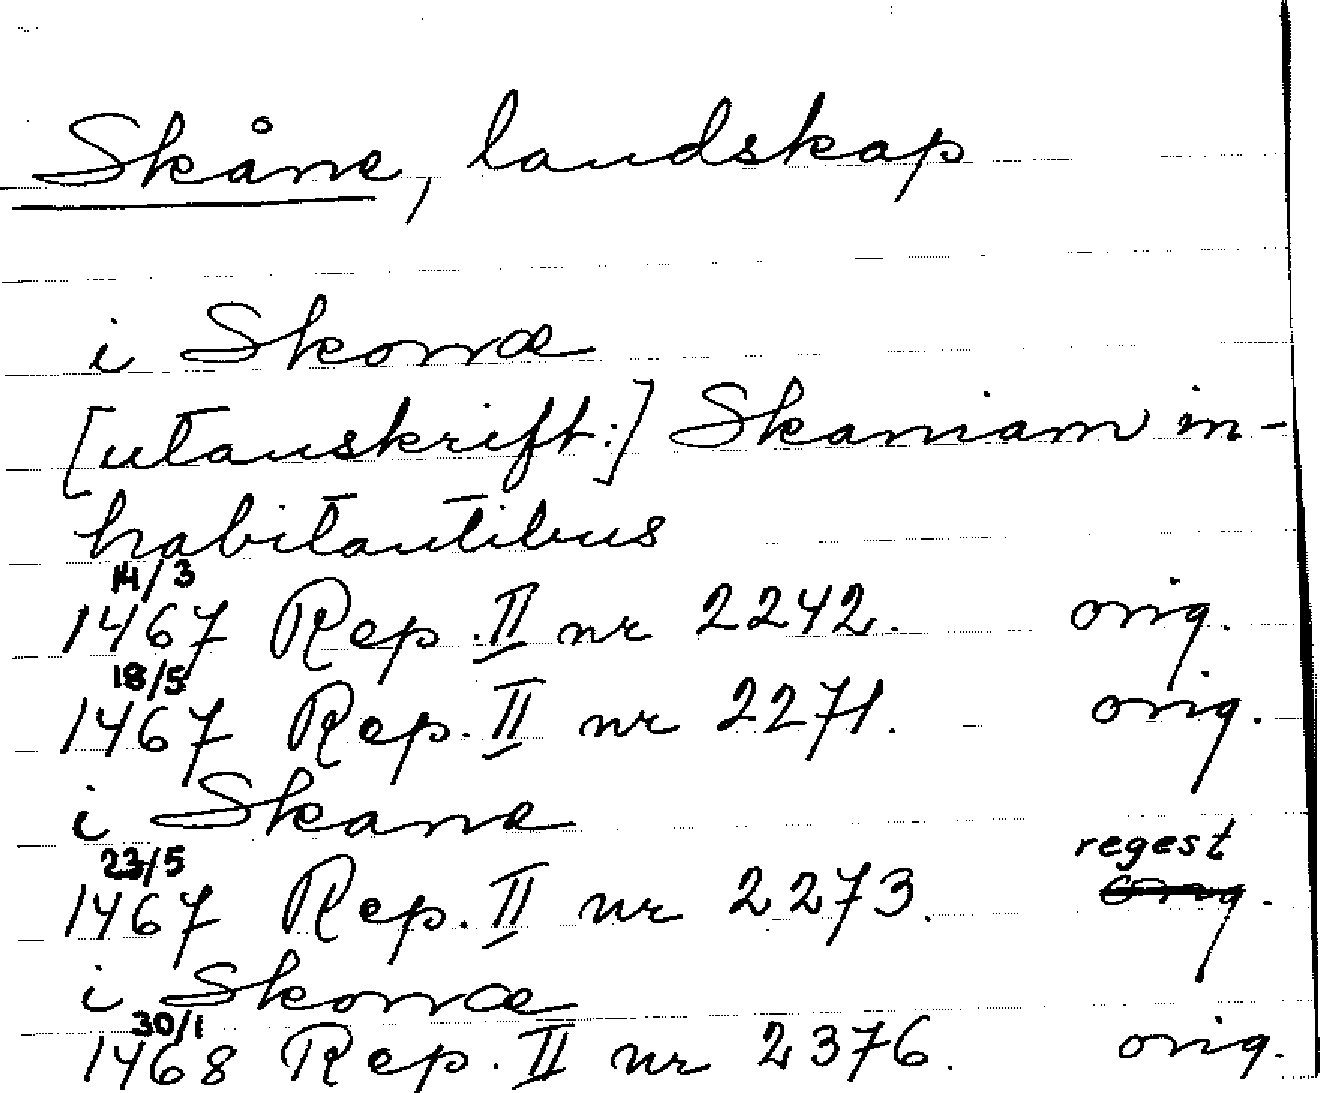 Skåne, landskap
i Skonæ
[utanskrift:] Skaniam in-
habitantibus
14/3
1467 Rep. II nr 2242. orig.
18/5
1467 Rep. II nr 2271. orig.
i Skane
regest
23/5
1467 Rep. II nr 2273. orig.
i Skonæ
30/1
1468 Rep. II nr 2376. orig.